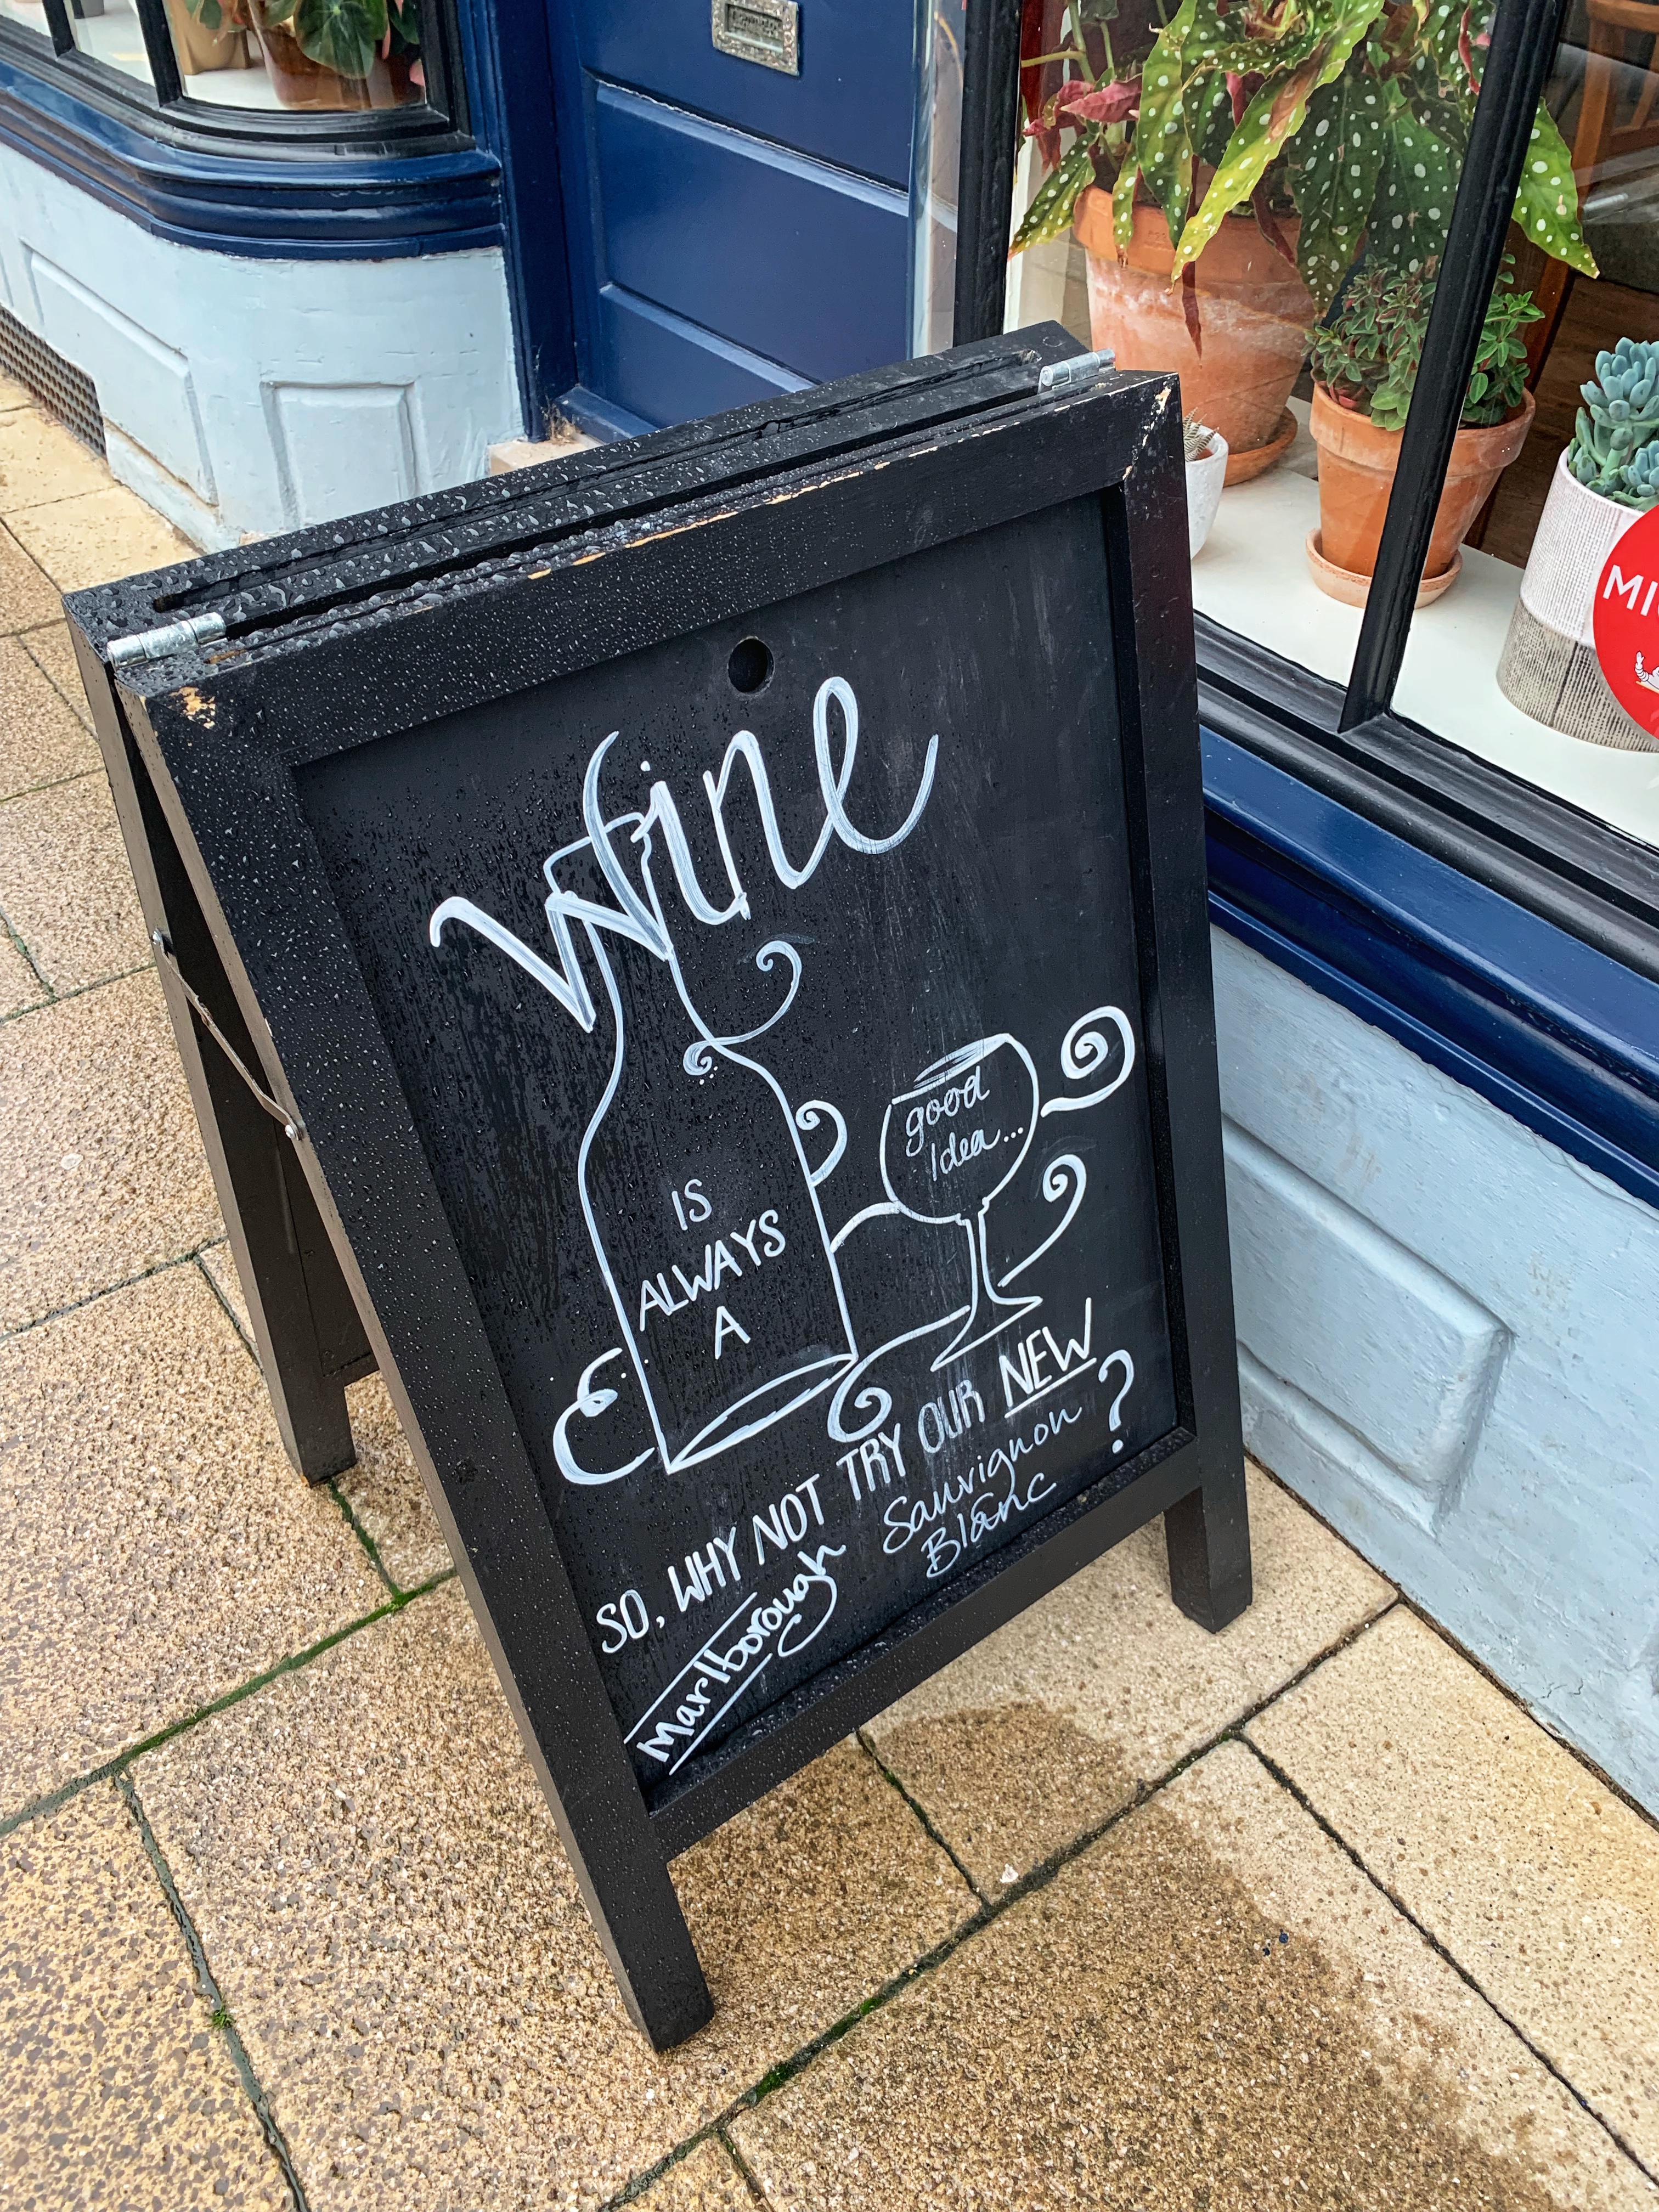 Wine
IS
ALWAYS
A
good
Idea...
SO, WHY NOT TRY OUR NEW
Marlborough Sauvignon
Blanc ?
MI